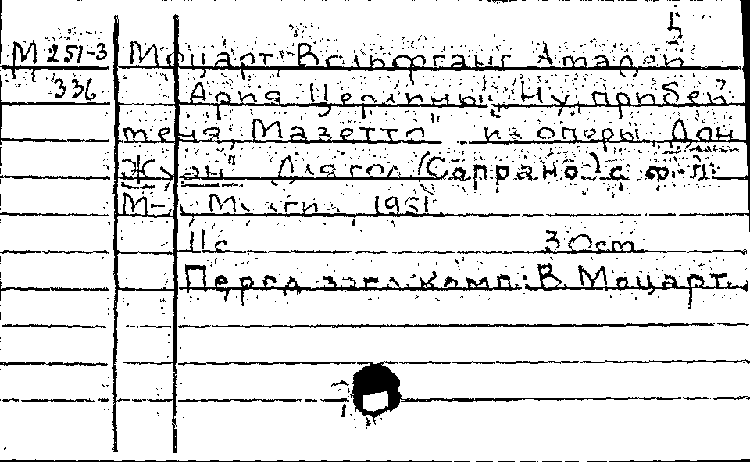 5
М 251-3 Моцарт, Вольфганг Амадей
336 Ария Церлины „Ну, прибей
меня, Мазетто" из оперы „Дон
Жуан" Для гол. (Сопрано) с ф.-п.
М-Л, Музгиз, 1951
11 с 30 ст
Перед загл. комп: В. Моцарт.